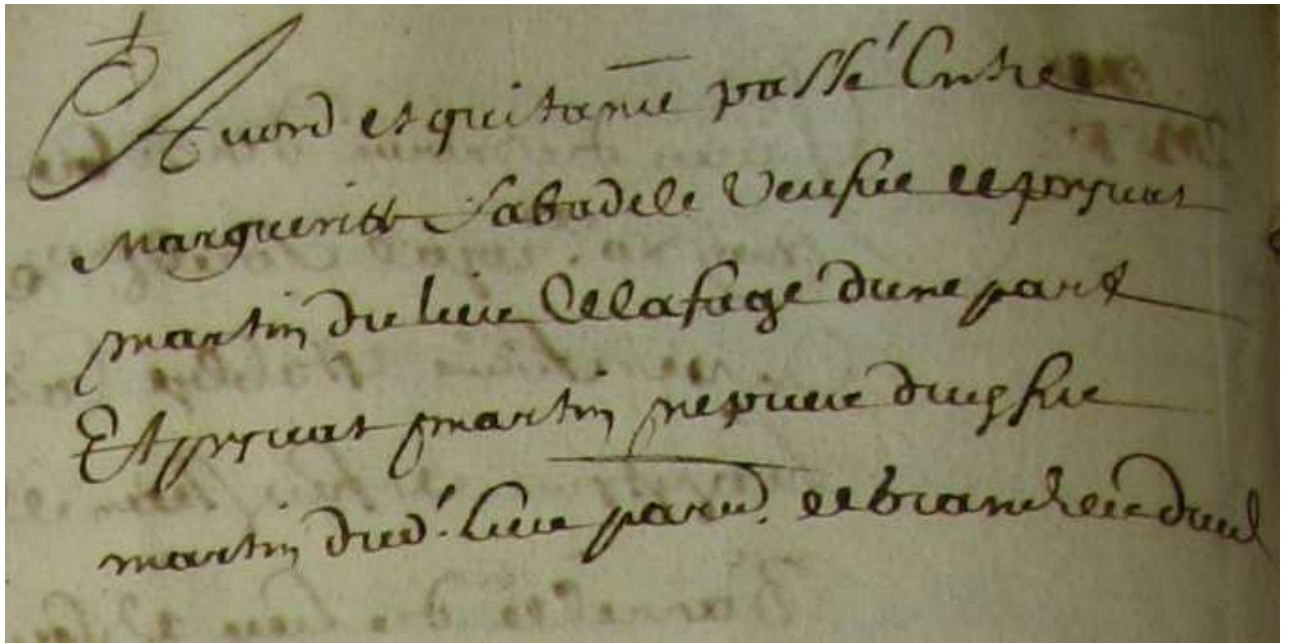 Acord et quitance passé Entre
marguerite Sabadele veufve de privat
martin du lieu de lafage dune part
Et privat martin nepveu dud feu
martin dud. lieu parr.